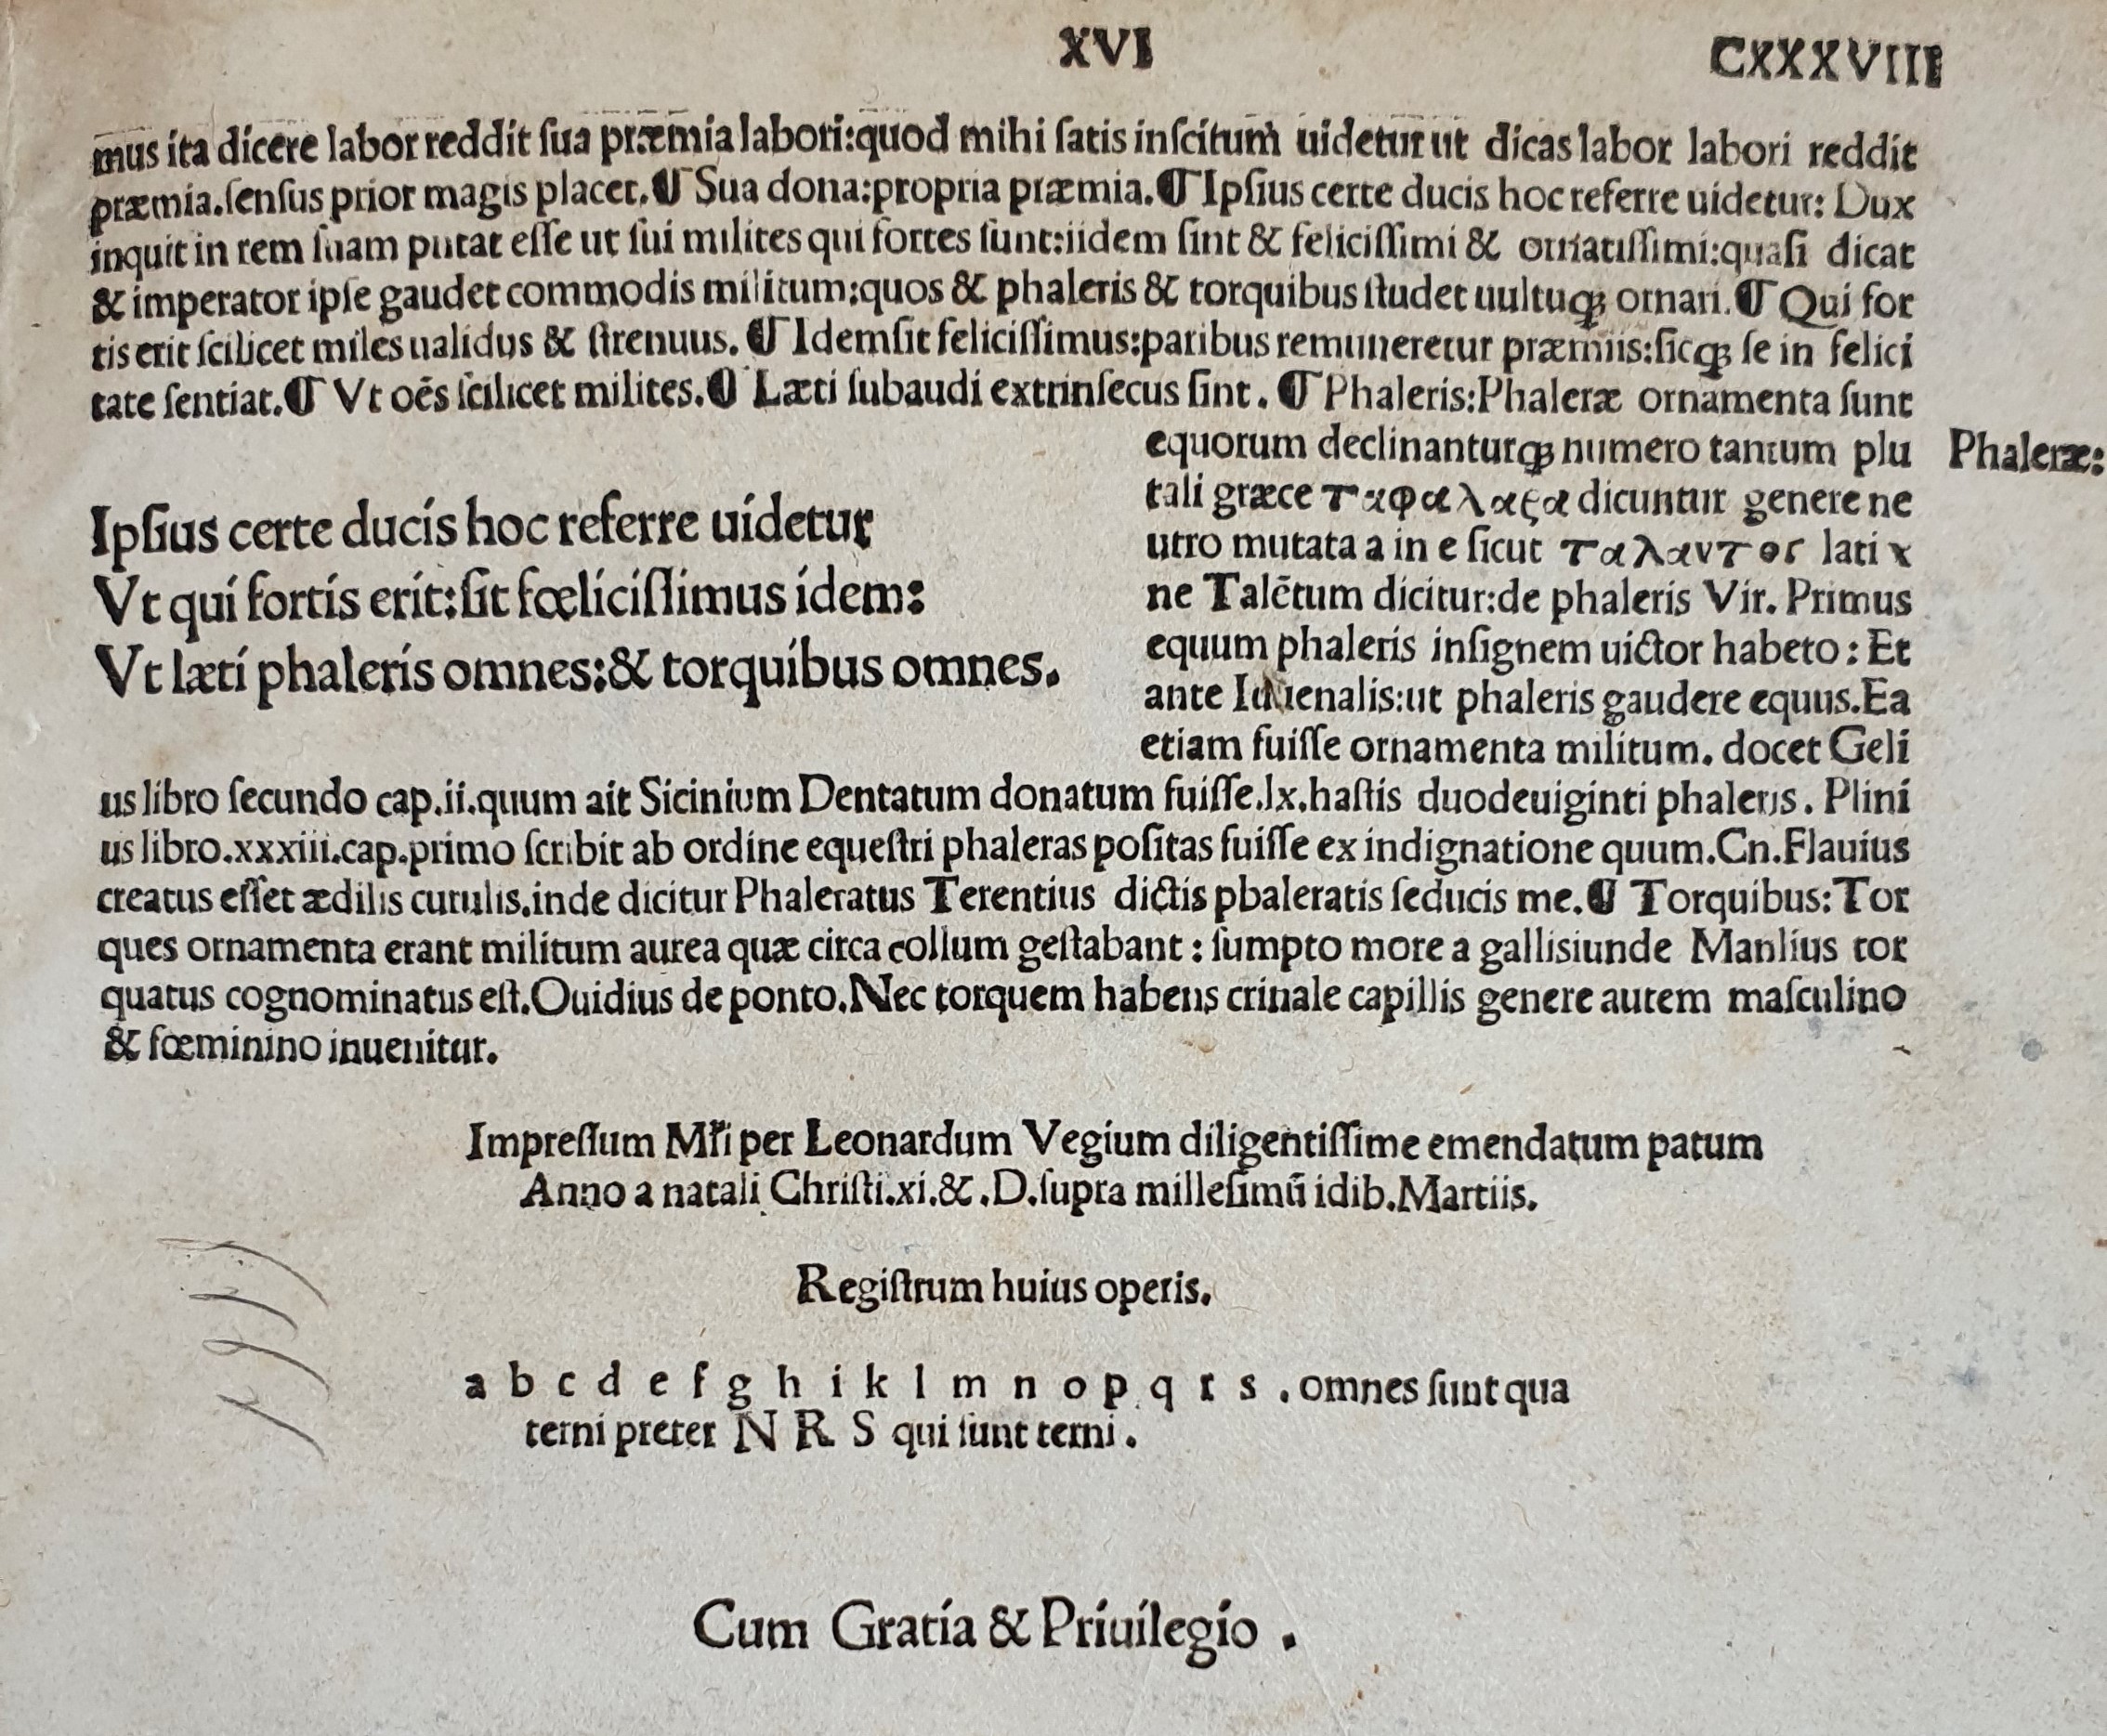 XVI
CXXXVIII
mus ita dicere labor reddit ſua præmia labori:quod mihi ſatis inſcitum uidetur ut dicas labor labori reddit
præmia.ſenſus prior magis placet.¶ Sua dona:propria præmia.¶ Ipſius certe ducis hoc referre uidetur: Dux
inquit in rem ſuam putat eſſe ut ſui milites qui fortes ſunt:iidem ſint & feliciſſimi & ornatiſſimi:quaſi dicat
& imperator ipſe gaudet commodis militum:quos & phaleris & torquibus ſtudet uultuqꝫ ornari.¶ Qui for
tis erit ſcilicet miles ualidus & ſtrenuus.¶ Idemſit feliciſſimus:paribus remuneretur præmiis:ſicqꝫ ſe in felici
tate ſentiat.¶ Vt oēs ſcilicet milites.¶ Læti ſubaudi extrinſecus ſint.¶ Phaleris:Phaleræ ornamenta ſunt
equorum declinanturqꝫ numero tantum plu
Phaleræ:
rali græce ταφαλαξα dicuntur genere ne
utro mutata a in e ſicut ταλαντος lati x
ne Talētum dicitur:de phaleris Vir. Primus
equum phaleris inſignem uictor habeto : Et
ante Iuuenalis:ut phaleris gaudere equus.Ea
etiam fuiſſe ornamenta militum. docet Geli
Ipſius certe ducis hoc referre uidetur
Vt qui fortis erit:ſit fœliciſſimus idem:
Vt læti phaleris omnes:& torquibus omnes.
us libro ſecundo cap.ii.quum ait Sicinium Dentatum donatum fuiſſe.lx.haſtis duodeuiginti phaleris. Plini
us libro.xxxiii.cap.primo ſcribit ab ordine equeſtri phaleras poſitas fuiſſe ex indignatione quum.Cn.Flauius
creatus eſſet ædilis curulis.inde dicitur Phaleratus Terentius dictis pbaleratis ſeducis me.¶ Torquibus:Tor
ques ornamenta erant militum aurea quæ circa collum geſtabant : ſumpto more a gallisiunde Manlius tor
quatus cognominatus eſt.Ouidius de ponto.Nec torquem habens crinale capillis genere autem maſculino
& fœminino inuenitur.
Impreſſum Mr̄i per Leonardum Vegium diligentiſſime emendatum patum
Anno a natali Chriſti.xi.&.D.ſupra milleſimū idib.Martiis.
Regiſtrum huius operis.
a b c d e f g h i k l m n o p q r s . omnes ſunt qua
terni preter N R S qui ſunt terni .
Cum Gratia & Priuilegio .